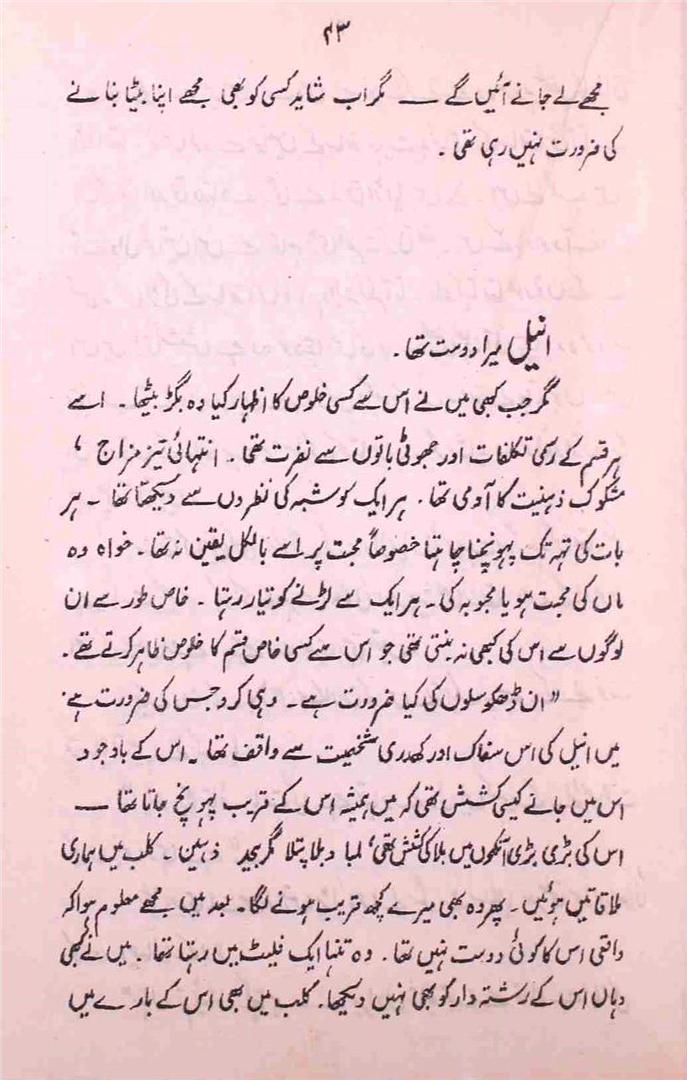 ۴۳
مجھے لے جانے آئیں گے — مگر اب شاید کسی کو بھی مجھے اپنا بیٹا بنانے
کی ضرورت نہیں رہی تھی ۔
انیل میرا دوست تھا ۔
مگر جب کبھی میں نے اس سے کسی خلوص کا اظہار کیا وہ بگڑ بیٹھا ۔ اسے
ہر قسم کے رسمی تکلفات اور جھوٹی باتوں سے نفرت تھی ۔ انتہائی تیز مزاج ،
مشکوک ذہنیت کا آدمی تھا ۔ ہر ایک کو شبہ کی نظروں سے دیکھتا تھا ۔ ہر
بات کی تہہ تک پہونچنا چاہتا خصوصاً محبت پر اسے بالکل یقین نہ تھا ۔ خواہ وہ
ماں کی محبت ہو یا محبوبہ کی ۔ ہر ایک سے لڑنے کو تیار رہتا ۔ خاص طور سے ان
لوگوں سے اس کی کبھی نہ بنتی تھی جو اس سے کسی خاص قسم کا خلوص ظاہر کرتے تھے ۔
" ان ڈھکوسلوں کی کیا ضرورت ہے ۔ وہی کرو جس کی ضرورت ہے ۔
میں انیل کی اس سفاک اور کھدری شخصیت سے واقف تھا ۔ اس کے باوجود
اس میں جانے کیسی کشش تھی کہ میں ہمیشہ اس کے قریب پہونچ جاتا تھا —
اس کی بڑی بڑی آنکھوں میں بلا کی کشش تھی ، لمبا دبلا پتلا مگر بیحد ذہین ۔ کلب میں ہماری
ملاقاتیں ہوئیں ۔ پھر وہ بھی میرے کچھ قریب ہونے لگا ۔ بعد میں مجھے معلوم ہوا کہ
واقعی اس کا کوئی دوست نہیں تھا ۔ وہ تنہا ایک فلیٹ میں رہتا تھا ۔ میں نے کبھی
وہاں اس کے رشتہ دار کو بھی نہیں دیکھا ۔ کلب میں بھی اس کے بارے میں